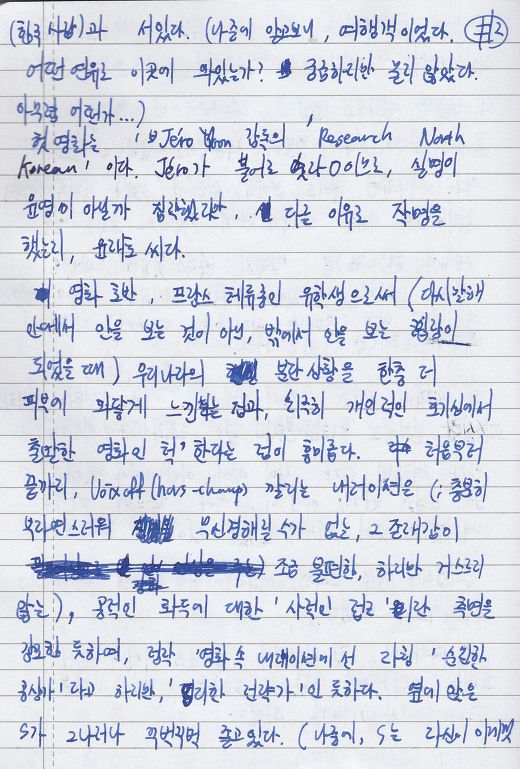 (한국 사람)과 서있다. (나중에 알고보니, 여행객이었다. #2
어떤 연유로 이곳에 와있는가? 궁금하지만 묻지 않았다.
아무렴 어떤가...)
첫 영화는 'Jéro Yoon 감독의 'Research North
Korean' 이다. Jéro가 불어로 0이므로, 실명이
윤영이 아닐까 짐작했지만, 다른 이유로 작명을
했느니, 윤래도 씨다.
영화 초반, 프랑스 체류중인 유학생으로써 (다시말해
안에서 안을 보는 것이 아닌, 밖에서 안을 보는 사람이
되었을 때) 우리나라의 분단상황을 한층 더
피부에 와닿게 느낀다는 점과, 지극히 개인적인 호기심에서
출발한 영화인 '척' 한다는 점이 흥미롭다. 처음부터
끝까지, Voix off (hors-champ) 깔리는 내러이션은 (; 충분히
부자연스러워 무신경해질 수가 없는, 그 존재감이
조금 불편한, 하지만 거스르지
않는), 공적인 화두에 대한 '사적인 접근'이란 측면을
강요한 듯하며, 정작 '영화 속 내레이션에선 자칭 '순진한
공상가'라고 하지만, '영리한 전략가'인 듯하다. 옆에 앉은
S가 그나저나 꾸벅꾸벅 졸고있다. (나중에, S는 자신이 이게뭣